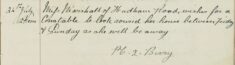 24th July Miss Marshall of Hadham Road, wishes for a
Constable to look round her house between Friday
& Sunday as she will be away
PC 2 Berry